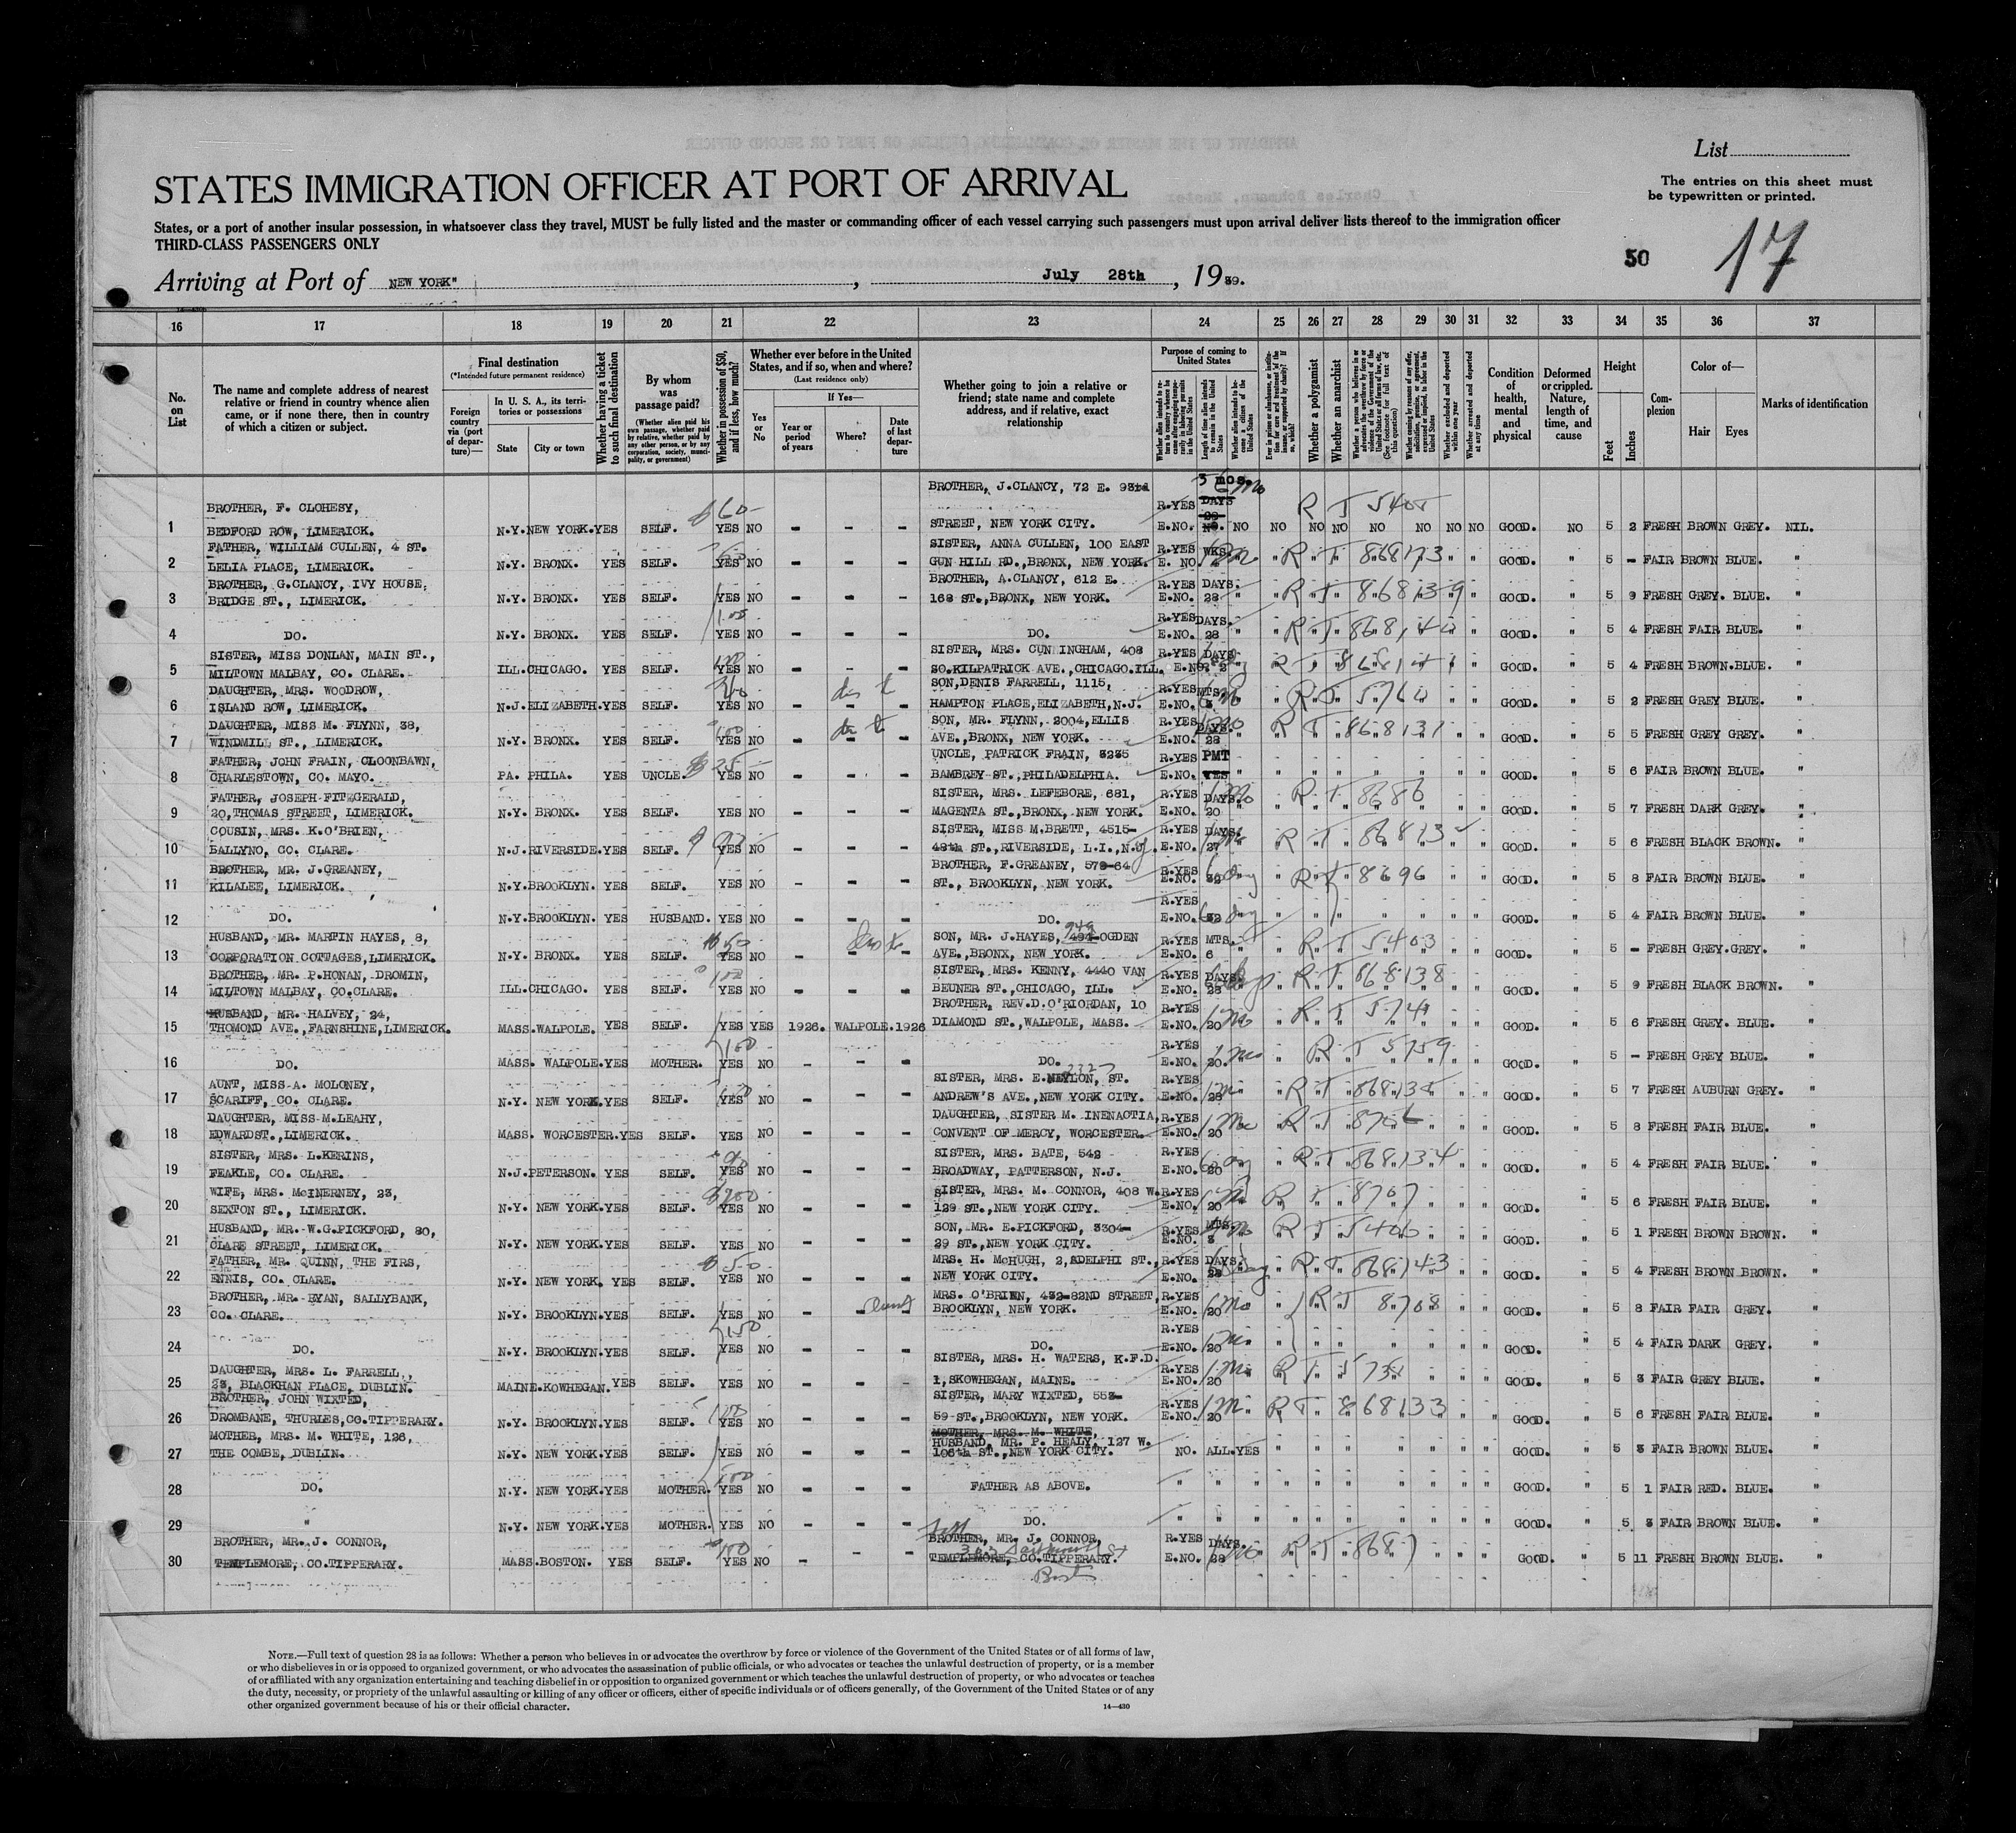 List
STATES IMMIGRATION OFFICER AT PORT OF ARRIVAL
The entries on this sheet must
be typewritten or printed.
States, or a port of another insular possession, in whatsoever class they travel, MUST be fully listed and the master or commanding officer of each vessel carrying such passengers must upon arrival deliver lists thereof to the immigration officer
THIRD-CLASS PASSENGERS ONLY
50 17
Arriving at Port of NEW YORK" , July 28th , 1939.
16 17 18 19 20 21 22 23 24 25 26 27 28 29 30 31 32 33 34 35 36 37
No. on List
The name and complete address of nearest relative or friend in country whence alien came, or if none there, then in country of which a citizen or subject.
Final destination
(*Intended future permanent residence)
Foreign country via (port of departure)—
In U. S. A., its territories or possessions
State City or town
Whether having a ticket to such final destination
By whom was passage paid?
(Whether alien paid his own passage, whether paid by relative, whether paid by any other person, or by any corporation, society, municipality, or government)
Whether in possession of $50, and if less, how much?
Whether ever before in the United States, and if so, when and where?
(Last residence only)
Yes or No
If Yes—
Year or period of years Where? Date of last departure
Whether going to join a relative or friend; state name and complete address, and if relative, exact relationship
Purpose of coming to United States
Whether a polygamist
Whether an anarchist
Condition of health, mental and physical
Deformed or crippled. Nature, length of time, and cause
Height
Feet Inches
Complexion
Color of—
Hair Eyes
Marks of identification
BROTHER, F. CLOHESY, $60 BROTHER, J.CLANCY, 72 E. 93rd 3 mos. R.YES DAYS R T 5405
1 BEDFORD ROW, LIMERICK. N.Y. NEW YORK. YES SELF. YES NO - - - STREET, NEW YORK CITY. E.NO. NO. NO NO NO NO NO NO NO NO GOOD. NO 5 2 FRESH BROWN GREY. NIL.
FATHER, WILLIAM CULLEN, 4 ST. SISTER, ANNA CULLEN, 100 EAST R.YES WKS. R T 868173
2 LELIA PLACE, LIMERICK. N.Y. BRONX. YES SELF. YES NO - - - GUN HILL RD.,BRONX, NEW YORK. E. NO " GOOD. " 5 - FAIR BROWN BLUE. "
BROTHER, G.CLANCY, IVY HOUSE, BROTHER, A.CLANCY, 612 E. R.YES DAYS. R T 868139
3 BRIDGE ST., LIMERICK. N.Y. BRONX. YES SELF. YES NO - - - 168 ST.,BRONX, NEW YORK. E.NO. 28 " GOOD. " 5 9 FRESH GREY. BLUE. "
100 R.YES DAYS. R T 868140
4 DO. N.Y. BRONX. YES SELF. YES NO - - - DO. E.NO. 28 " GOOD. " 5 4 FRESH FAIR BLUE. "
SISTER, MISS DONLAN, MAIN ST., SISTER, MRS. CUNNINGHAM, 408 R.YES DAYS R T 868141
5 MILTOWN MALBAY, CO. CLARE. ILL. CHICAGO. YES SELF. YES NO - - - SO.KILPATRICK AVE.,CHICAGO.ILL. E.NO. GOOD. " 5 4 FRESH BROWN.BLUE. "
DAUGHTER, MRS. WOODROW, SON,DENIS FARRELL, 1115, R.YES MTS. R T 5760
6 ISLAND ROW, LIMERICK. N.J. ELIZABETH. YES SELF. YES NO - - - HAMPTON PLACE,ELIZABETH,N.J. E.NO. " GOOD. " 5 2 FRESH GREY BLUE. "
DAUGHTER, MISS M. FLYNN, 38, SON, MR. FLYNN, 2004,ELLIS R.YES DAYS. R T 868131
7 WINDMILL ST., LIMERICK. N.Y. BRONX. YES SELF. YES NO - - - AVE.,BRONX, NEW YORK. E.NO. 28 " GOOD. " 5 5 FRESH GREY GREY. "
FATHER, JOHN FRAIN, CLOONBAWN, $25 UNCLE, PATRICK FRAIN, 3235 R.YES PMT
8 CHARLESTOWN, CO. MAYO. PA. PHILA. YES UNCLE. YES NO - - - BAMBREY ST.,PHILADELPHIA. E.NO. YES " GOOD. " 5 6 FAIR BROWN BLUE. "
FATHER, JOSEPH FITZGERALD, SISTER, MRS. LEFEBORE, 681, R.YES DAYS. R T 8686
9 20,THOMAS STREET, LIMERICK. N.Y. BRONX. YES SELF. YES NO - - - MAGENTA ST.,BRONX, NEW YORK. E.NO. 20 " GOOD. " 5 7 FRESH DARK GREY. "
COUSIN, MRS. K.O'BRIEN, SISTER, MISS M.BRETT, 4515- R.YES DAYS. R T 86813
10 BALLYNO, CO. CLARE. N.J. RIVERSIDE. YES SELF. YES NO - - - 48th ST.,RIVERSIDE, L.I.,N.Y. E.NO. 27 " GOOD. " 5 6 FRESH BLACK BROWN. "
BROTHER, MR. J.GREANEY, BROTHER, F.GREANEY, 579-64 R.YES R T 8696
11 KILALEE, LIMERICK. N.Y. BROOKLYN. YES SELF. YES NO - - - ST., BROOKLYN, NEW YORK. E.NO. GOOD. " 5 8 FAIR BROWN BLUE. "
R.YES
12 DO. N.Y. BROOKLYN. YES HUSBAND. YES NO - - - DO. E.NO. GOOD. " 5 4 FAIR BROWN BLUE. "
HUSBAND, MR. MARTIN HAYES, 8, $50 SON, MR. J.HAYES, 949 OGDEN R.YES MTS. R T 5403
13 CORPORATION COTTAGES,LIMERICK. N.Y. BRONX. YES SELF. YES NO - - - AVE.,BRONX, NEW YORK. E.NO. 6 " GOOD. " 5 - FRESH GREY.GREY. "
BROTHER, MR. P.HONAN, DROMIN, 100 SISTER, MRS. KENNY, 4440 VAN R.YES DAYS. R T 868138
14 MILTOWN MALBAY, CO.CLARE. ILL. CHICAGO. YES SELF. YES NO - - - BEUNER ST.,CHICAGO, ILL. E.NO. 28 GOOD. " 5 9 FRESH BLACK BROWN. "
HUSBAND, MR. HALVEY, 24, BROTHER, REV.D.O'RIORDAN, 10 R.YES R T 5749
15 THOMOND AVE.,FARNSHINE,LIMERICK. MASS. WALPOLE. YES SELF. YES YES 1926. WALPOLE. 1926 DIAMOND ST.,WALPOLE, MASS. E.NO. 20 GOOD. " 5 6 FRESH GREY. BLUE. "
150 R.YES R T 5759
16 DO. MASS. WALPOLE. YES MOTHER. YES NO - - - DO. E.NO. 20 1 mo GOOD. " 5 - FRESH GREY BLUE. "
AUNT, MISS A. MOLONEY, SISTER, MRS. E.NEYLON, 2327 ST. R.YES R T 868135
17 SCARIFF, CO. CLARE. N.Y. NEW YORK. YES SELF. YES NO - - - ANDREW'S AVE.,NEW YORK CITY. E.NO. 28 GOOD. " 5 7 FRESH AUBURN GREY. "
DAUGHTER, MISS M.LEAHY, DAUGHTER, SISTER M. INENACTIA, R.YES R T 8706
18 EDWARDST.,LIMERICK. MASS. WORCESTER. YES SELF. YES NO - - - CONVENT OF MERCY, WORCESTER. E.NO. 20 GOOD. " 5 8 FRESH FAIR BLUE. "
SISTER, MRS. L.KERINS, SISTER, MRS. BATE, 542 R.YES R T 868134
19 FEAKLE, CO. CLARE. N.J. PETERSON. YES SELF. YES NO - - - BROADWAY, PATTERSON, N.J. E.NO. 20 GOOD. " 5 4 FRESH FAIR BLUE. "
WIFE, MRS. McINERNEY, 23, $200 SISTER, MRS. M. CONNOR, 408 W. R.YES R T 8707
20 SEXTON ST., LIMERICK. N.Y. NEW YORK. YES SELF. YES NO - - - 129 ST.,NEW YORK CITY. E.NO. 20 GOOD. " 5 6 FRESH FAIR BLUE. "
HUSBAND, MR. W.G.PICKFORD, 80, SON, MR. E.PICKFORD, 3304- R.YES MTS. R T 5406
21 CLARE STREET, LIMERICK. N.Y. NEW YORK. YES SELF. YES NO - - - 29 ST.,NEW YORK CITY. E.NO. 3 GOOD. " 5 1 FRESH BROWN BROWN. "
FATHER, MR. QUINN, THE FIRS, $50 MRS. H. McHUGH, 2,ADELPHI ST., R.YES DAYS. R T 868143
22 ENNIS, CO. CLARE. N.Y. NEW YORK. YES SELF. YES NO - - - NEW YORK CITY. E.NO. 28 GOOD. " 5 4 FRESH BROWN BROWN. "
BROTHER, MR. RYAN, SALLYBANK, MRS. O'BRIEN, 432-82ND STREET, R.YES R T 8708
23 CO. CLARE. N.Y. BROOKLYN. YES SELF. YES NO - - aunt BROOKLYN, NEW YORK. E.NO. 20 GOOD. " 5 8 FAIR FAIR GREY. "
150 R.YES
24 DO. N.Y. BROOKLYN. YES SELF. YES NO - - - DO. E.NO. 20 GOOD. " 5 4 FAIR DARK GREY. "
DAUGHTER, MRS. L. FARRELL, SISTER, MRS. H. WATERS, K.F.D. R.YES R T
25 23, BLACKHAN PLACE, DUBLIN. MAINE. KOWHEGAN. YES SELF. YES NO - - - 1,SKOWHEGAN, MAINE. E.NO. 20 GOOD. " 5 3 FAIR GREY BLUE. "
BROTHER, JOHN WIXTED, 100 SISTER, MARY WIXTED, 553- R.YES R T 868133
26 DROMBANE, THURLES,CO.TIPPERARY. N.Y. BROOKLYN. YES SELF. YES NO - - - 59 ST.,BROOKLYN, NEW YORK. E.NO. 20 GOOD. " 5 6 FRESH FAIR BLUE. "
MOTHER, MRS. M. WHITE, 126, MOTHER, MRS. M. WHITE,
HUSBAND, MR. P. HEALY, 127 W.
27 THE COMBE, DUBLIN. N.Y. NEW YORK. YES SELF. YES NO - - - 106th ST.,NEW YORK CITY. NO. ALL.YES " GOOD. " 5 3 FAIR BROWN BLUE. "
28 DO. N.Y. NEW YORK. YES MOTHER. YES NO - - - FATHER AS ABOVE. " GOOD. " 5 1 FAIR RED. BLUE. "
29 " N.Y. NEW YORK. YES MOTHER. YES NO - - - DO. " GOOD. " 5 3 FAIR BROWN BLUE. "
BROTHER, MR. J. CONNOR, 100 BROTHER, MR. J. CONNOR, R.YES DAYS. R T 8687
30 TEMPLEMORE, CO.TIPPERARY. MASS. BOSTON. YES SELF. YES NO - - - TEMPLEMORE, CO.TIPPERARY. E.NO. 28 GOOD. " 5 11 FRESH BROWN BLUE. "
NOTE.—Full text of question 28 is as follows: Whether a person who believes in or advocates the overthrow by force or violence of the Government of the United States or of all forms of law,
or who disbelieves in or is opposed to organized government, or who advocates the assassination of public officials, or who advocates or teaches the unlawful destruction of property, or is a member
of or affiliated with any organization entertaining and teaching disbelief in or opposition to organized government or which teaches the unlawful destruction of property, or who advocates or teaches
the duty, necessity, or propriety of the unlawful assaulting or killing of any officer or officers, either of specific individuals or of officers generally, of the Government of the United States or of any
other organized government because of his or their official character. 14—430